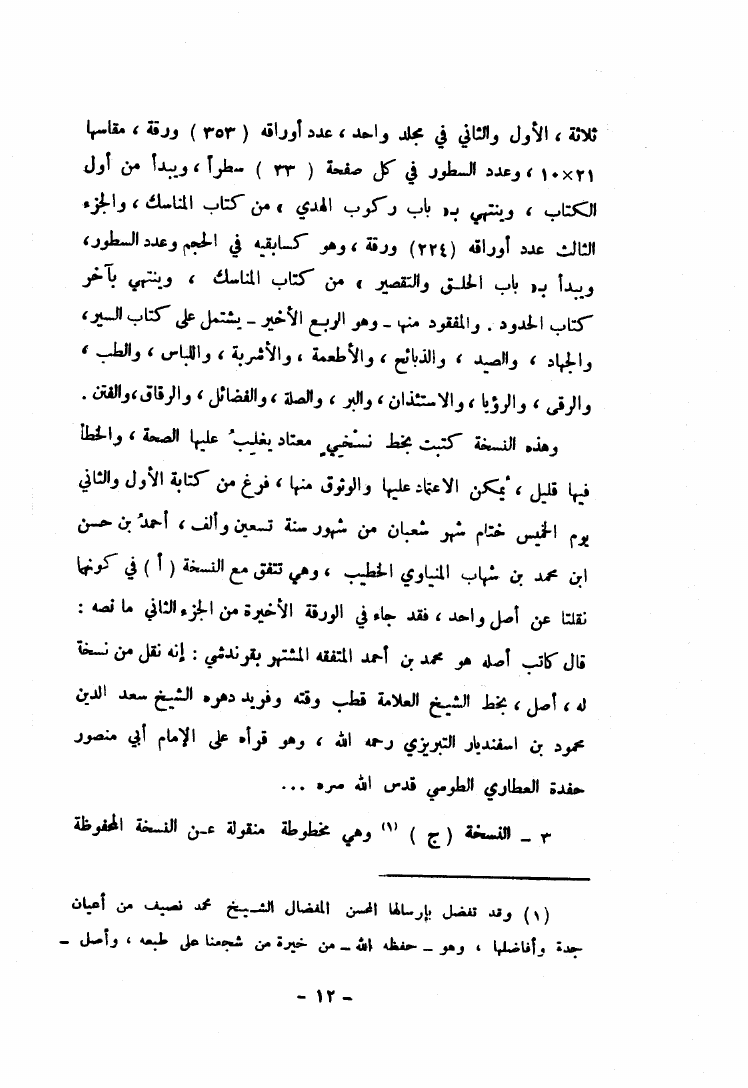 ثلاثة ، الأول والثاني في مجلد واحد ، عدد أوراقه ( ٣٥٣ ) ورقة ، مقاسها
٢١×١٠ ، وعدد السطور في كل صفحة ( ٣٣ ) سطراً ، ويبدأ من أول
الكتاب ، وينتهي بـ« باب ركوب الهدي » من كتاب المناسك ، والجزء
الثالث عدد أوراقه (٢٢٤) ورقة ، وهو كسابقيه في الحجم وعدد السطور ،
ويبدأ بـ« باب الحلـق والتقصير » من كتاب المناسك ، وينتهي بآخر
كتاب الحدود . والمفقود منها ـ وهو الربـع الأخير ـ يشتمل على كتاب السير ،
والجهاد ، والصيد ، والذبائح ، والأطعمة ، والأشربة ، واللباس ، والطب ،
والرقى ، والرؤيا ، والاستئذان ، والبر ، والصلة ، والفضائل ، والرقاق ، والفتن .
وهذه النسخة كتبت بخط نسْخيٍ معتاد يغلِبُ عليها الصحة ، والخطأ
فيها قليل ، يُمكن الاعتماد عليها والوثوق منها ، فرغ من كتابة الأول والثاني
يوم الخميس ختام شهر شعبان من شهور سنة تسعين وألف ، أحمدُ بن حسن
ابن محمد بن شهاب المنياوي الخطيب ، وهي تتفق مع النسخة ( أ ) في كونها
نقلتا عن أصل واحد ، فقد جاء في الورقة الأخيرة من الجزء الثاني ما نصه :
قال كاتب أصله هو محمد بن أحمد المتفقه المشتهر بقوندشي : إنه نقل من نسخة
له ، أصل ، بخط الشيخ العلامة قطب وقته وفريد دهره الشيخ سعد الدين
محمود بن اسفنديار التبريزي رحمه الله ، وهو قرأه على الإمام أبي منصور
حفدة العطاري الطوسي قدس الله سره ...
٣ ـ النسخة ( ج ) (١) وهي مخطوطة منقولة عـن النسخة المحفوظة
(١) وقد تفضل بإرسالها المحسن المفضال الشـيخ محمد نصيف من أعيان
جدة وأفاضلها ، وهو ـ حفظه الله ـ من خيرة من شجعنا على طبعه ، وأصل ـ
- ١٢ -